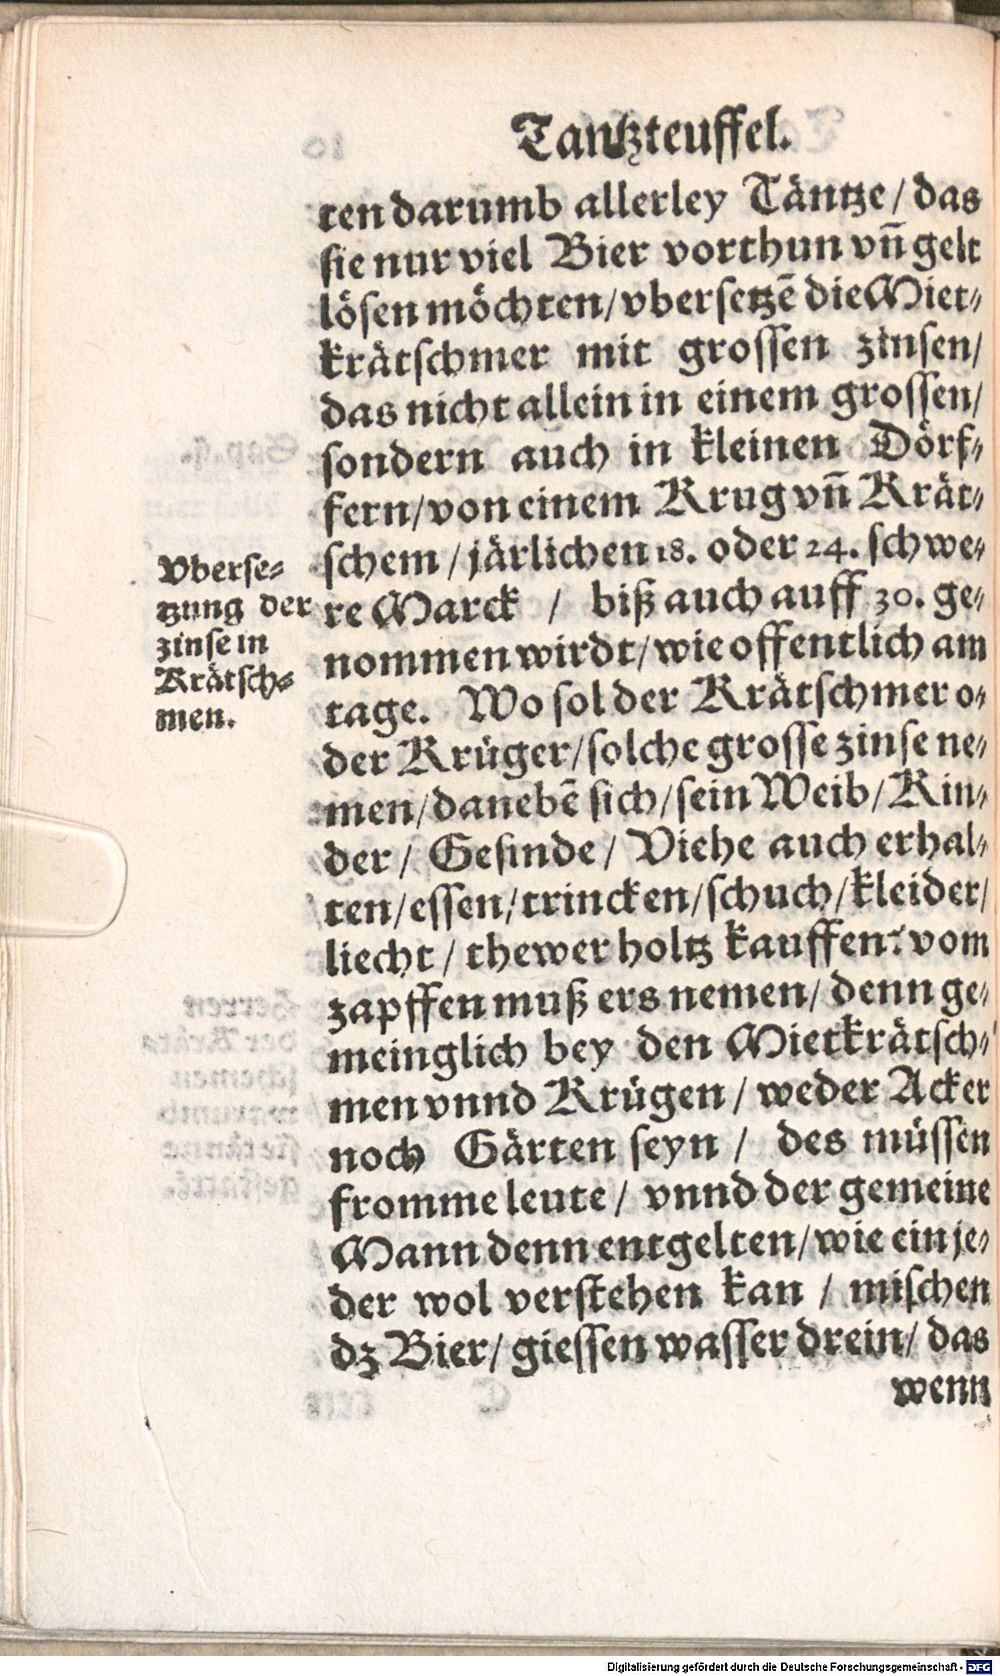 Tantzteuffel.
ten darumb allerley Täntze / das
sie nur viel Bier vorthun vn̄ gelt
lösen möchten / vbersetzē die Miet⸗
krätschmer mit grossen zinsen /
das nicht allein in einem grossen /
sondern auch in kleinen Dörf⸗
fern / von einem Krug vn̄ Krät⸗
schem / järlichen 18. oder 24. schwe⸗
re Marck / biß auch auff 30. ge⸗
nommen wirdt / wie offentlich am
tage. Wo sol der Krätschmer o⸗
der Krüger / solche grosse zinse ne⸗
men / danebē sich / sein Weib / Kin⸗
der / Gesinde / Viehe auch erhal⸗
ten / essen / trincken / schuch / kleider /
liecht / thewer holtz kauffen? vom
zapffen muß ers nemen / denn ge⸗
meinglich bey den Mietkrätsch⸗
men vnnd Krügen / weder Acker
noch Gärten seyn / des müssen
fromme leute / vnnd der gemeine
Mann denn entgelten / wie ein je⸗
der wol verstehen kan / mischen
dz Bier / giessen wasser drein / das
wenn
Vberse⸗
tzung der
zinse in
Krätsch⸗
men.
Digitalisierung gefördert durch die Deutsche Forschungsgemeinschaft - DFG